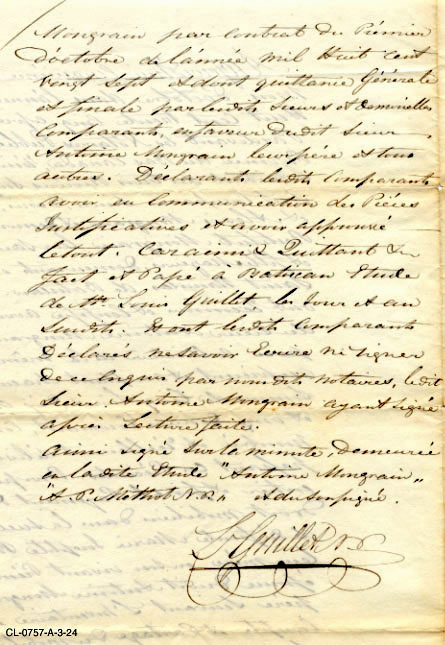 Mongrain par contrat du Prémier
D'octobre de l'année mil Huit cent
Vingt Sept et dont quittance Générale
et finale par lesdits Sieurs et Demoiselles
Comparants, en faveur Dudit Sieur
Antoine Mongrain leur père et tous
autres. Déclarants lesdits Comparants
avoir eu Communication des Piéces
Justificatives et avoir approuvé
letout. Car ainsi &c Quittant &c
fait et Passé à Batiscan Etude
de Mtre Louis Guillet les Jour et an
Susdits. Et ont lesdits Comparants
Déclarés ne Savoir Ecrire ni Signer
de ce Enquis par nous dits notaires, ledit
Sieur Antoine Mongrain ayant Signé
après Lecture faite.
Ainsi signé Sur la minute, demeurée
en la dite Etude "Antoine Mongrain"
"A. P. Méthot N.P." et du Soussigné.
Ls Guillet N.P.
CL-0757-A-3-24